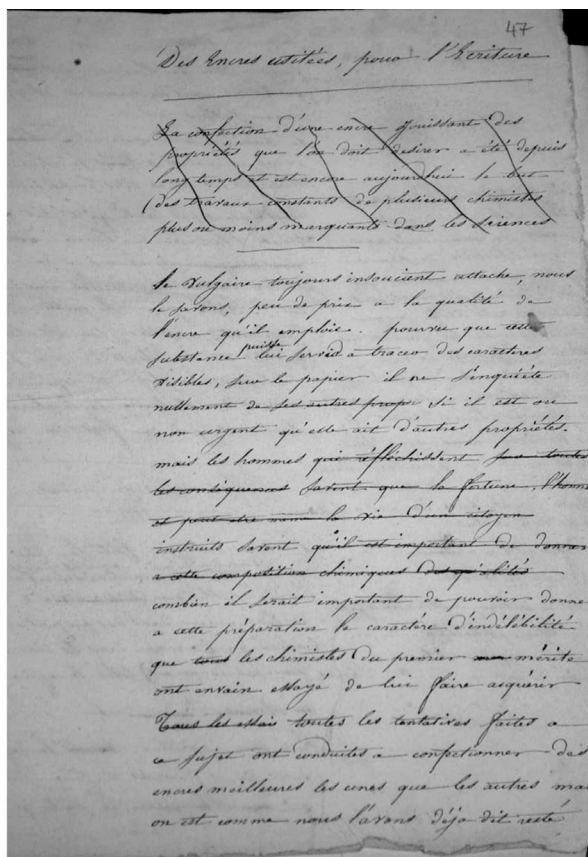 47
Des Encres usitées, pour l'Ecriture
La confection d'une encre jouissant des
propriétés que l'on doit desirer a été depuis
long temps et est encore aujourd'hui le but
(des travaux constants de plusieurs chimistes
plus ou moins marquants dans les sciences
le vulgaire toujours insoucient attache, nous
le savons, peu de prix a la qualité de
l'encre qu'il emploie. pourvu que cette
substance puisse lui servir a tracer des caractères
visibles, sur le papier il ne s'inquiéte
nullement de ses autres propr, si il est ou
non urgent qu'elle ait d'autres propriétés.
mais les hommes qui réfléchissent sur toutes
les conséquences savent que la fortune, l'honn
et peut etre même la vie d'un citoyen
instruits savent qu'il est important de donner
a cette composition chimiques des qualités
combien il serait important de pouvoir donne
a cette préparation le caractère d'indélébilité
que tous les chimistes du premier mérite
ont envain essayé de lui faire acquérir
Tous les essais toutes les tentatives faites a
ce sujet ont conduites a confectionner des
encres meilleures les unes que les autres mai
on est comme nous l'avons déja dit resté